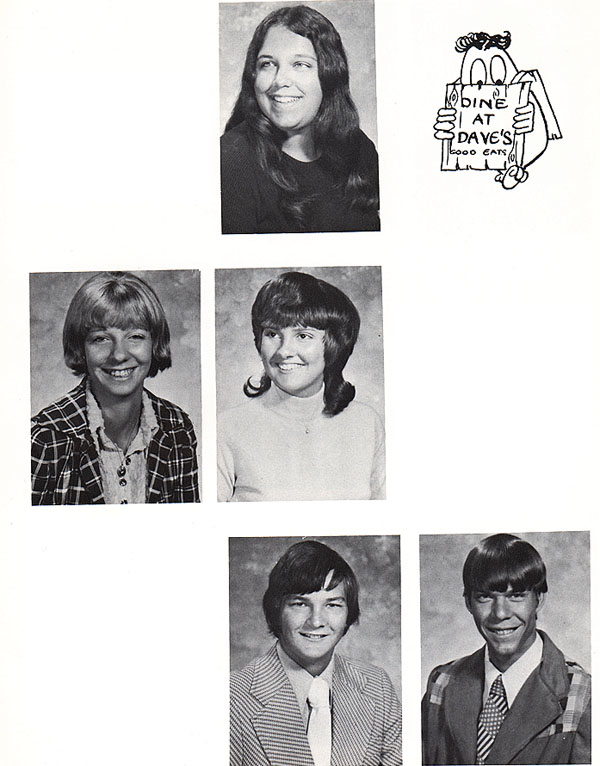 DINE
AT
DAVE'S
GOOD EATS